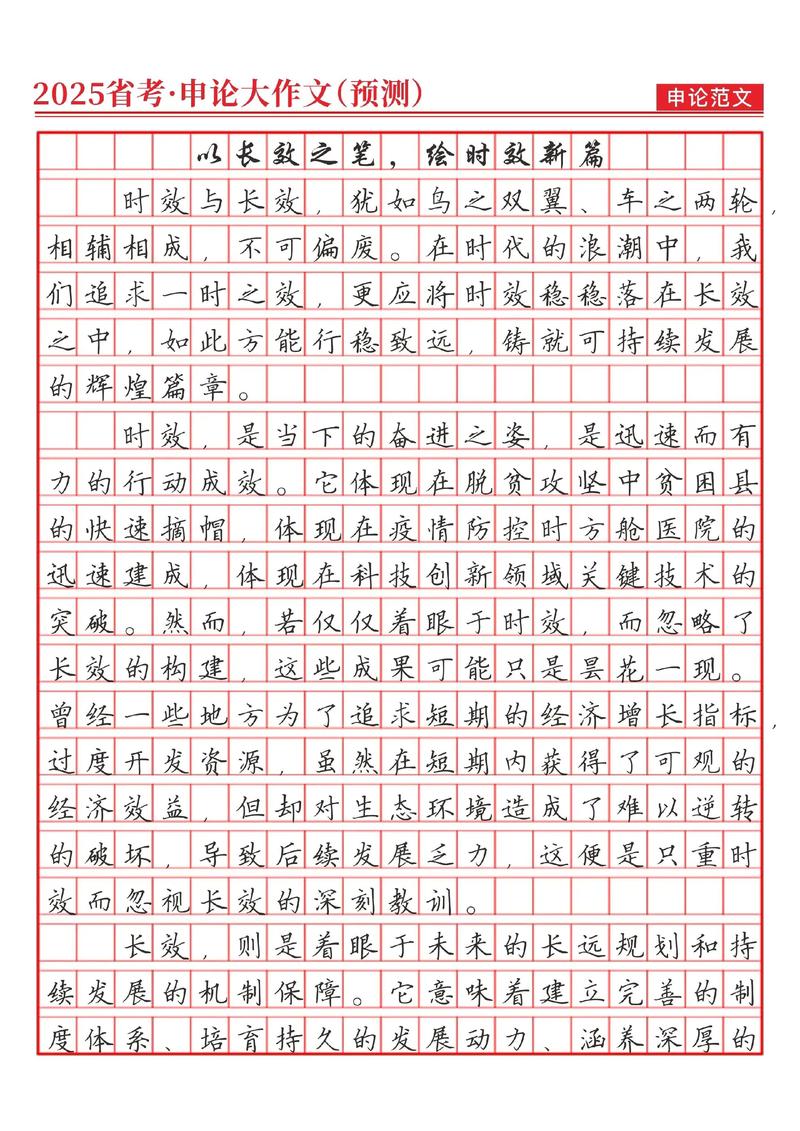 2025省考·申论大作文（预测）
申论范文
以长效之笔，绘时效新篇
时效与长效，犹如鸟之双翼、车之两轮，
相辅相成，不可偏废。在时代的浪潮中，我
们追求一时之效，更应将时效稳稳落在长效
之中，如此方能行稳致远，铸就可持续发展
的辉煌篇章。
时效，是当下的奋进之姿，是迅速而有
力的行动成效。它体现在脱贫攻坚中贫困县
的快速摘帽，体现在疫情防控时方舱医院的
迅速建成，体现在科技创新领域关键技术的
突破。然而，若仅仅着眼于时效，而忽略了
长效的构建，这些成果可能只是昙花一现。
曾经一些地方为了追求短期的经济增长指标，
过度开发资源，虽然在短期内获得了可观的
经济效益，但却对生态环境造成了难以逆转
的破坏，导致后续发展乏力，这便是只重时
效而忽视长效的深刻教训。
长效，则是着眼于未来的长远规划和持
续发展的机制保障。它意味着建立完善的制
度体系、培育持久的发展动力、涵养深厚的